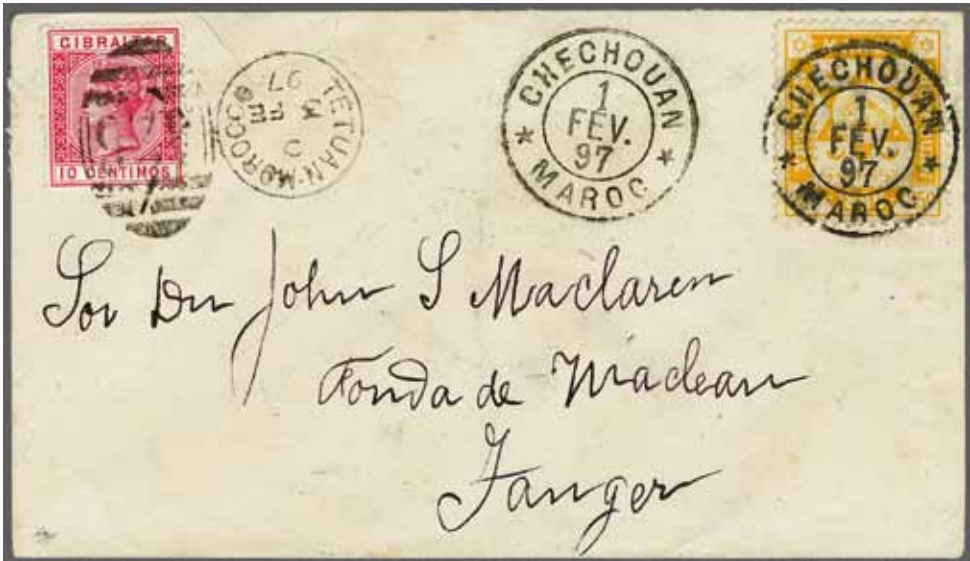 GIBRALTAR
10 CENTIMOS
TETUAN-MOROCCO
C
FE 3
97
CHECHOUAN
1
FEV.
97
* MAROC *
CHECHOUAN
1
FEV.
97
* MAROC *
Sor Dn John S Maclaren
Fonda de Maclean
Tanger